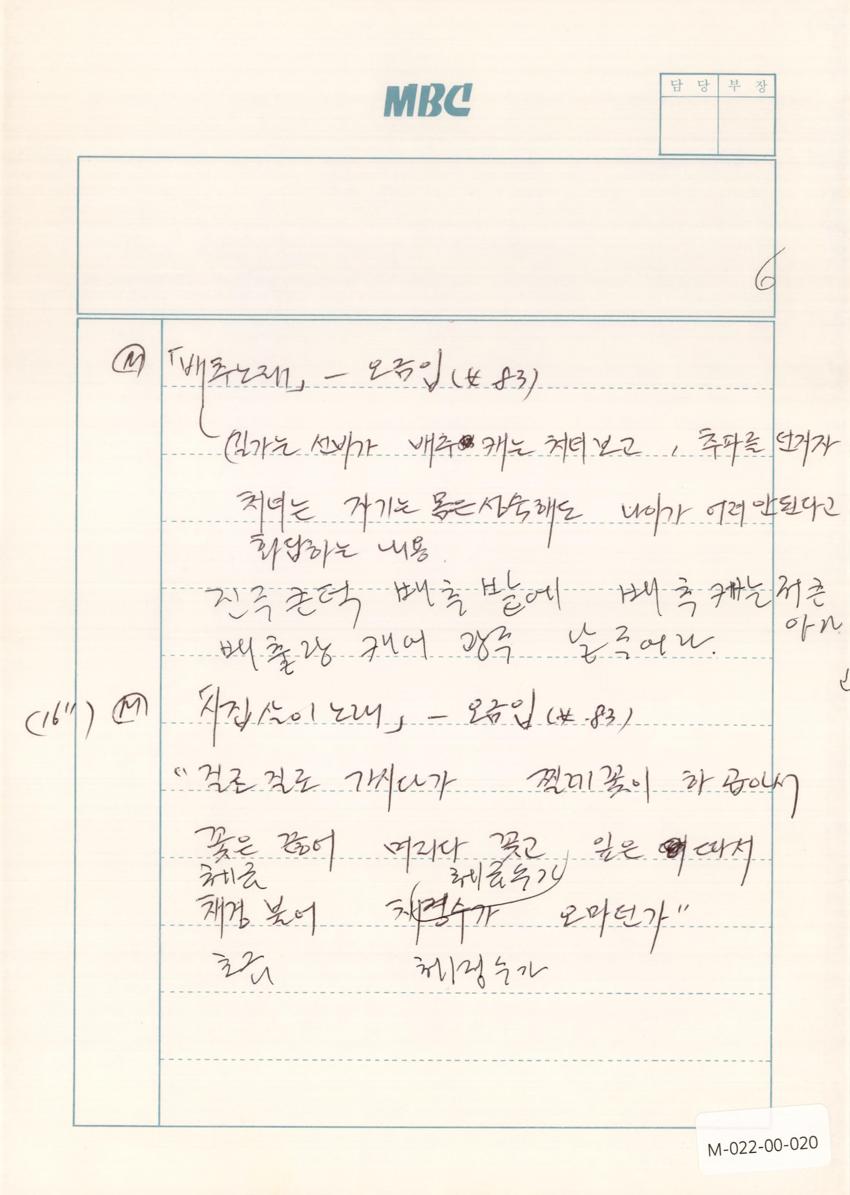 MBC
담 당 부 장
6
Ⓜ 「배추노래」 - 오금입 (# 83)
(길가는 선비가 배추 캐는 처녀보고, 추파를 던지자
처녀는 자기는 몸은 성숙해도 나이가 어려 안된다고
화답하는 내용.
진주 존덕 배추 밭에 배추 캐는 저 큰
아가
배출랑 캐어 광주 날 주어라.
(16") Ⓜ 「시집살이 노래」 - 오금입 (# 83)
"길로 길로 가시다가 찔레꽃이 하 곱아서
꽃은 끊어 머리다 꽂고 잎은 따서
체금 체금누가
채경 불어 채경수가 오마던가"
초금 체정누가
M-022-00-020